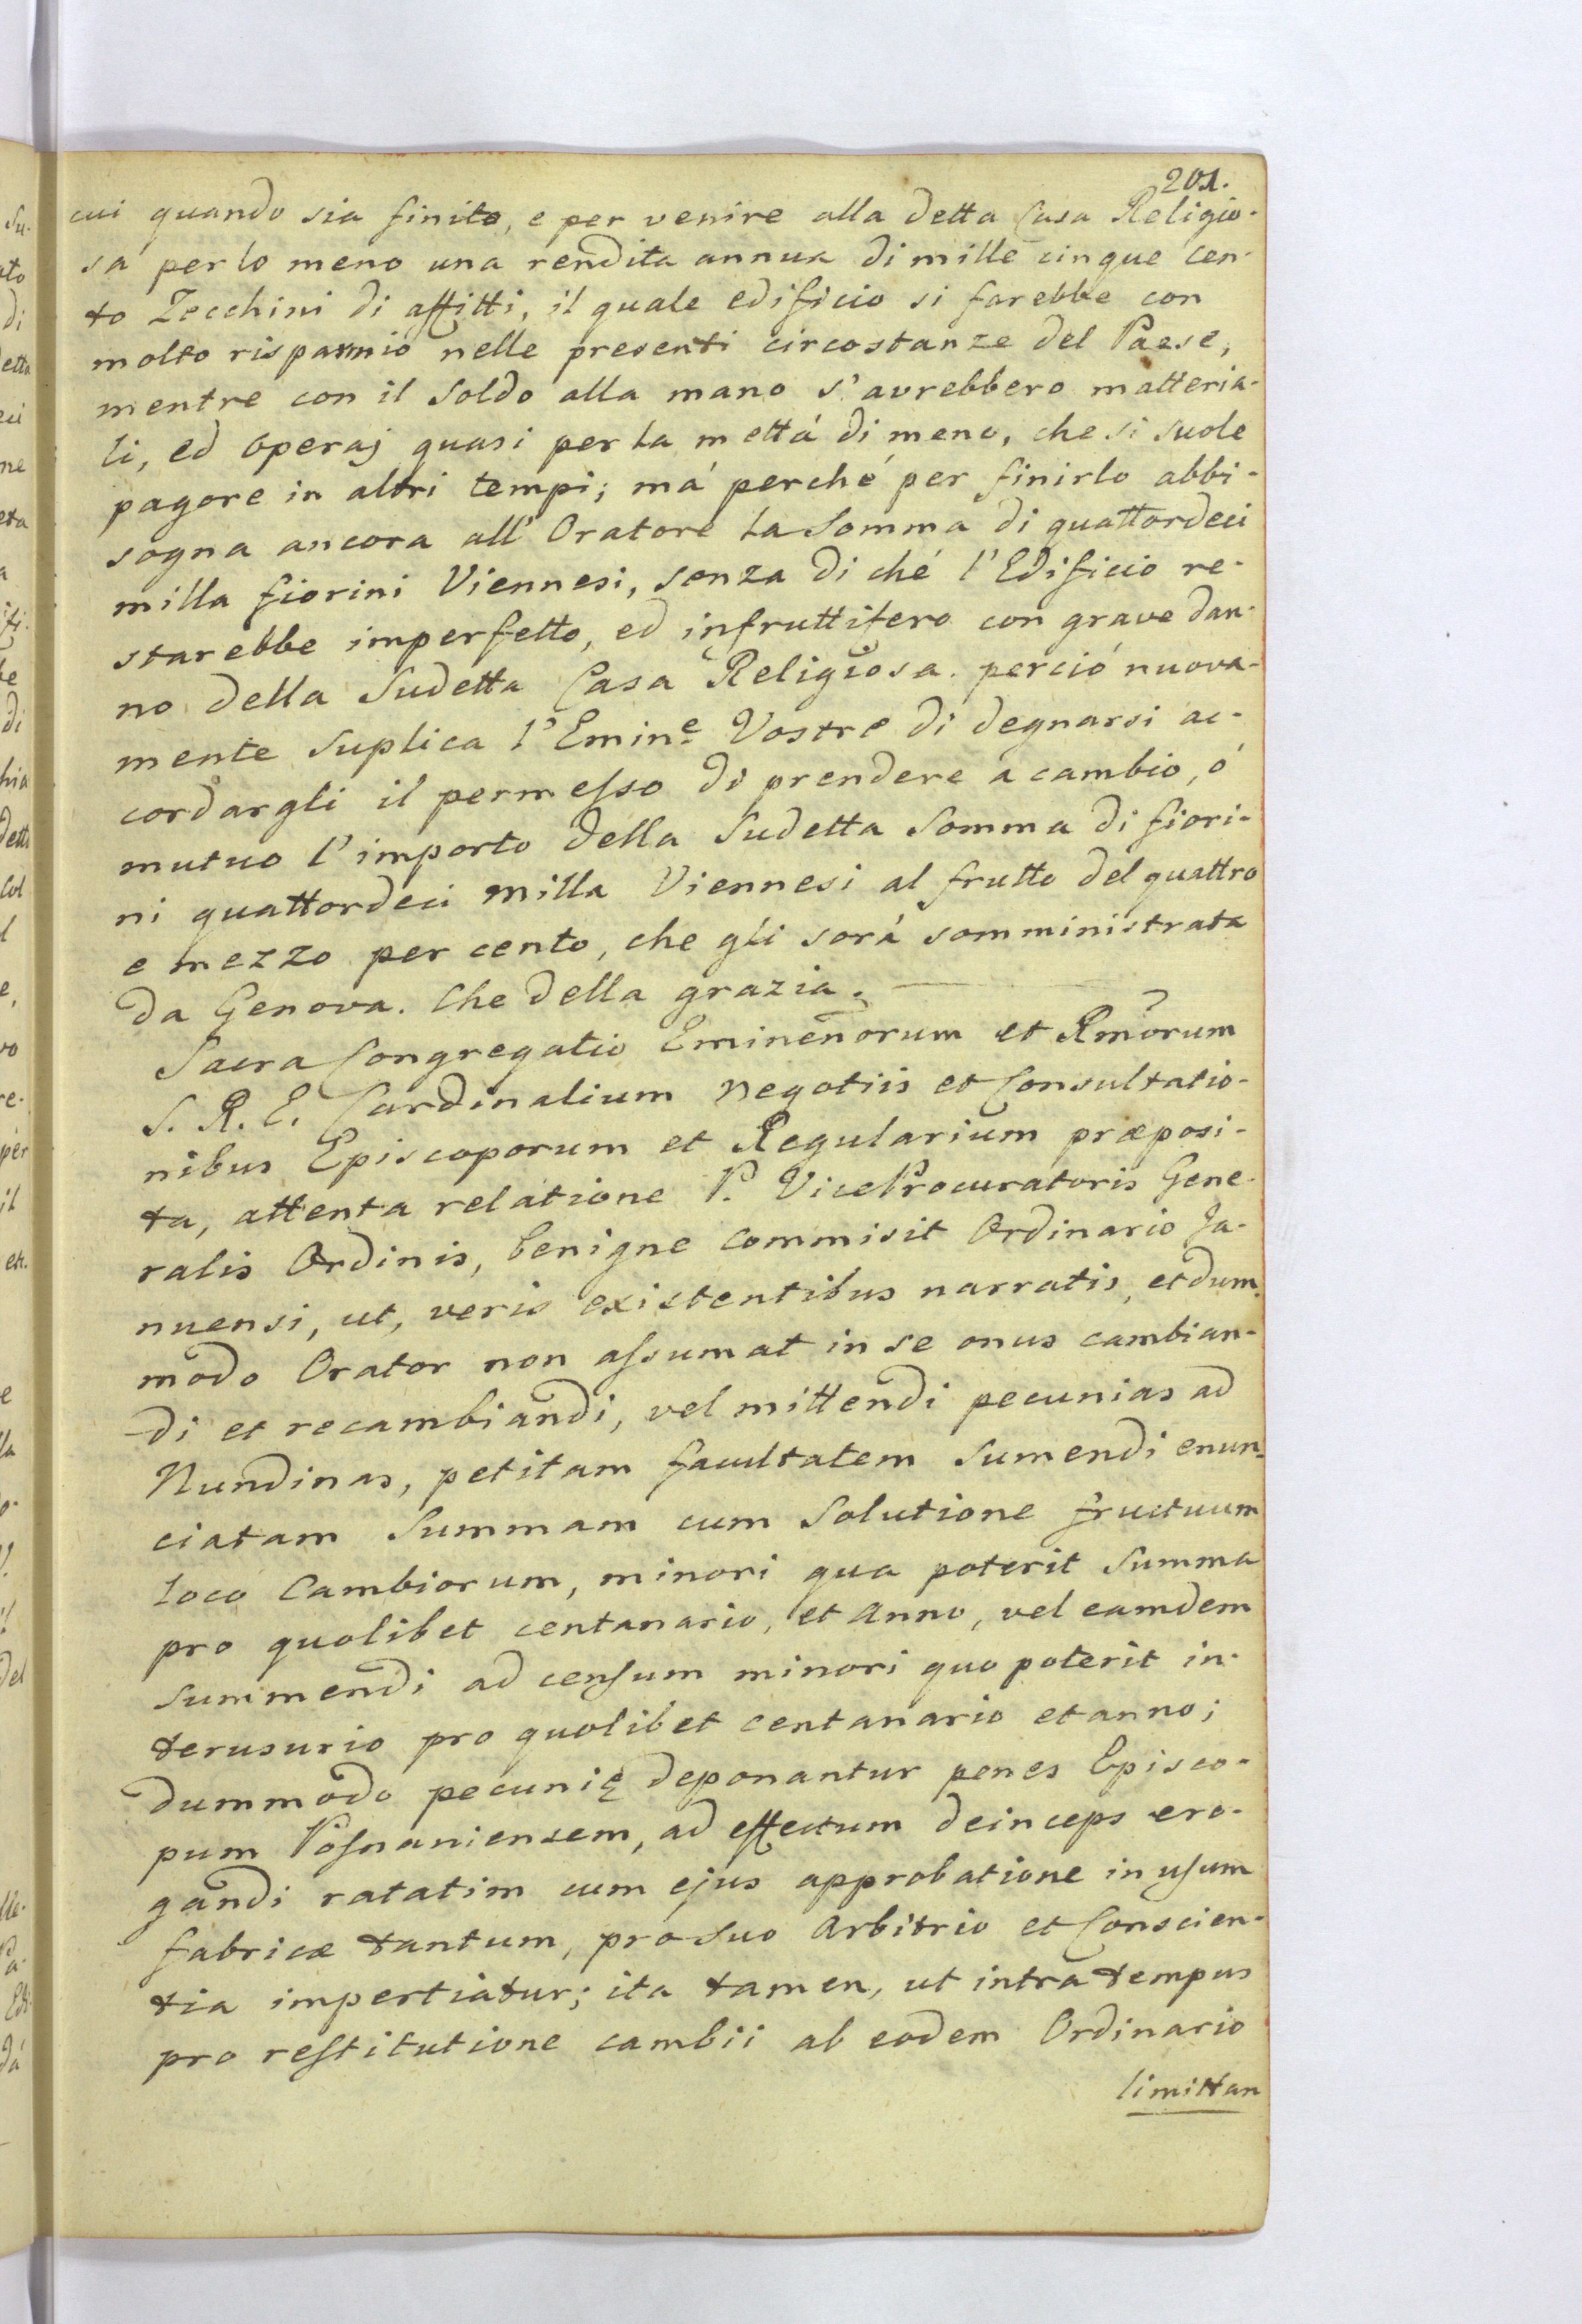 201.
cui quando sia finito, e per venire alla detta Casa Religio-
sa per lo meno una rendita annua di mille cinque cen-
to Zecchini di affitti, il quale edificio si farebbe con
molto risparmio nelle presenti circostanze del Paese,
mentre con il Soldo alla mano s'avrebbero matteria-
li, ed operaj quasi per la mettá di meno, che si suole
pagare in altri tempi; má perché per finirlo abbi-
sogna ancora all' Oratore la Somma di quattordeci
milla fiorini Viennesi, senza di ché l'Edificio re-
starebbe imperfetto, ed infruttifero con grave dan-
no della Sudetta Casa Religiosa. perció nuova-
mente Suplica l'Emin.e Vostre di degnarsi ac-
cordargli il permesso di prendere a cambio, ó
mutuo l'importo della Sudetta Somma di fiori-
ni quattordeci milla Viennesi al frutto del quattro
e mezzo per cento, che gli sará somministrata
da Genova. Che della grazia.
Sacra Congregatio Eminen̄orum et Rm̄orum
S. R. E. Cardinalium negotiis et Consultatio-
nibus Episcoporum et Regularium præposi-
ta, attenta relatione P. ViceProcuratoris Gene-
ralis Ordinis, benigne commisit Ordinario Ja-
nuensi, ut, veris existentibus narratis, et dum-
modo Orator non assumat in se onus cambian-
di et recambiandi, vel mittendi pecunias ad
Nundinas, petitam facultatem Sumendi enun-
ciatam Summam cum Solutione fructuum
loco Cambiorum, minori qua poterit Summa
pro quolibet centanario, et Anno, vel eamdem
summendi ad censum minori quo poterit in-
terusurio pro quolibet centanario et anno;
dummodo pecunię deponantur penes Episco-
pum Posnaniensem, ad effectum deinceps ero-
gandi ratatim cum ejus approbatione in usum
fabricæ tantum, pro Suo Arbitrio et Conscien-
tia impertiatur; ita tamen, ut intra tempus
pro restitutione cambii ab eodem Ordinario
limittan